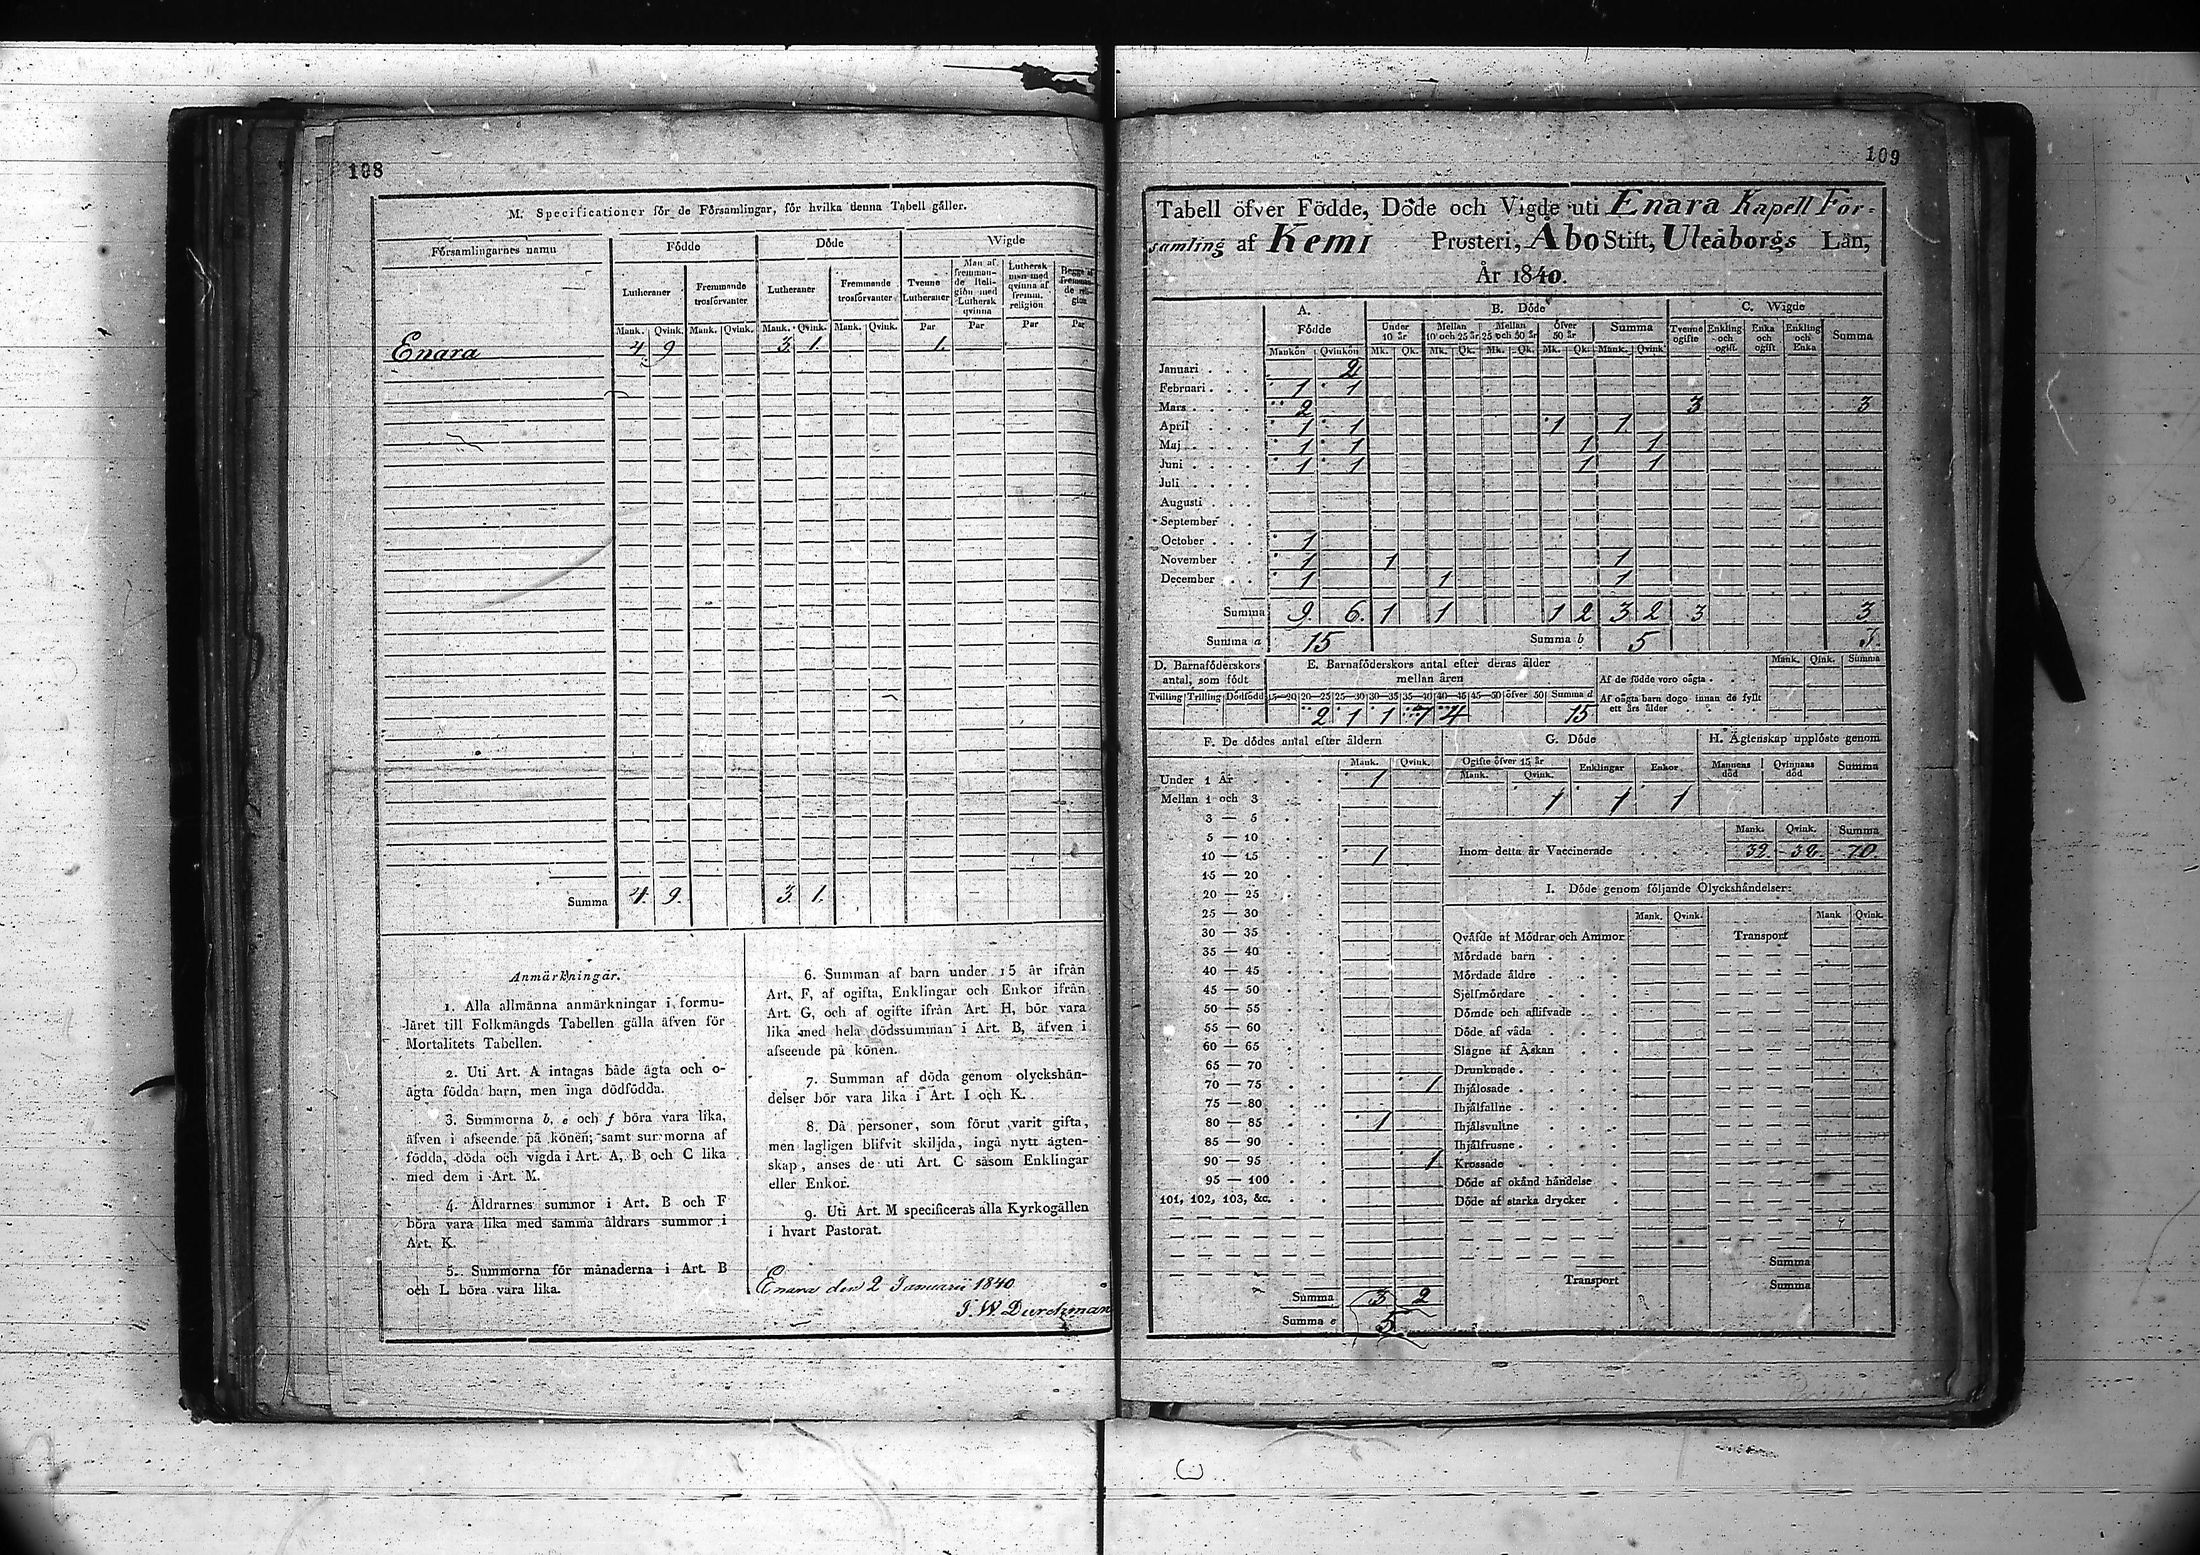 108
M. Specificationer för de Församlingar, för hvilka denna Tabell gäller.
Församlingarnes namn | Födde | Döde | Wigde
Lutheraner | Fremmande trosförvanter | Lutheraner | Fremmande trosförvanter | Tvenne Lutheraner | Man af fremmande Religion med Luthersk qvinna | Luthersk man med qvinna af fremm. religion | Begge af fremmande religion
Mank. | Qvink. | Mank. | Qvink. | Mank. | Qvink. | Mank. | Qvink. | Par | Par | Par | Par
Enara 4. 9 3. 1. 1.
Summa 4. 9. 3. 1.
Anmärkningar.
1. Alla allmänna anmärkningar i formu-
läret till Folkmängds Tabellen gälla äfven för
Mortalitets Tabellen.
2. Uti Art. A intagas både ägta och o-
ägta födda barn, men inga dödfödda.
3. Summorna b, e och f böra vara lika,
äfven i afseende på könen; samt summorna af
födda, döda och vigda i Art. A, B och C lika
med dem i Art. M.
4. Äldrarnes summor i Art. B och F
böra vara lika med samma åldrars summor i
Art. K.
5. Summorna för månaderna i Art. B
och L böra vara lika.
6. Summan af barn under 15 år ifrån
Art. F, af ogifta, Enklingar och Enkor ifrån
Art. G, och af ogifte ifrån Art. H, bör vara
lika med hela dödssumman i Art. B, äfven i
afseende på könen.
7. Summan af döda genom olyckshän-
delser bör vara lika i Art. I och K.
8. Då personer, som förut varit gifta,
men lagligen blifvit skiljda, ingå nytt ägten-
skap, anses de uti Art. C såsom Enklingar
eller Enkor.
9. Uti Art. M specificeras alla Kyrkogällen
i hvart Pastorat.
Enara den 2 Januarii 1840
J. W. Durchman
109
Tabell öfver Födde, Döde och Vigde uti Enara Kapell För-
samling af Kemi Prosteri, Åbo Stift, Uleåborgs Län,
År 1840.
A. Födde | B. Döde | C. Wigde
Under 10 år | Mellan 10 och 25 år | Mellan 25 och 50 år | öfver 50 år | Summa | Tvenne ogifte | Enkling och ogift | Enka och ogift | Enkling och Enka | Summa
Mankön | Qvinkön | Mk. | Qk. | Mk. | Qk. | Mk. | Qk. | Mk. | Qk. | Mank. | Qvink.
Januari 2
Februari 1 1
Mars 2 3 3
April 1 1 1 1
Maj 1 1 1 1
Juni 1 1 1 1
Juli
Augusti
September
October 1
November 1 1 1
December 1 1 1
Summa 9. 6. 1 1 1 2 3 2 3 3
Summa a 15 Summa b 5
D. Barnaföderskors antal, som födt
Tvilling | Trilling | Dödfödd
E. Barnaföderskors antal efter deras ålder mellan åren
15—20 | 20—25 | 25—30 | 30—35 | 35—40 | 40—45 | 45—50 | öfver 50 | Summa d
2 1 1 7 4 15
Mank. | Qink. | Summa
Af de födde voro oägta
Af oägta barn dogo innan de fyllt
ett års ålder
F. De dödes antal efter åldern
Mank. | Qvink.
Under 1 År 1
Mellan 1 och 3
3 — 5
5 — 10
10 — 15 1
15 — 20
20 — 25
25 — 30
30 — 35
35 — 40
40 — 45
45 — 50
50 — 55
55 — 60
60 — 65
65 — 70
70 — 75 1
75 — 80
80 — 85 1
85 — 90
90 — 95 1
95 — 100
101, 102, 103, &c.
Summa 3 2
Summa e 5
G. Döde
Ogifte öfver 15 år | Enklingar | Enkor
Mank. | Qvink.
1 1 1
H. Ägtenskap upplöste genom
Mannens död | Qvinnans död | Summa
Mank. | Qvink. | Summa
Inom detta år Vaccinerade 70.
I. Döde genom följande Olyckshändelser:
Mank. | Qvink. | Mank | Qvink.
Qväfde af Mödrar och Ammor Transport
Mördade barn
Mördade äldre
Sjelfmördare
Dömde och aflifvade
Döde af våda
Slagne af Åskan
Drunknade
Ihjälosade
Ihjälfallne
Ihjälsvultne
Ihjälfrusne
Krossade
Döde af okänd händelse
Döde af starka drycker
Summa
Transport Summa